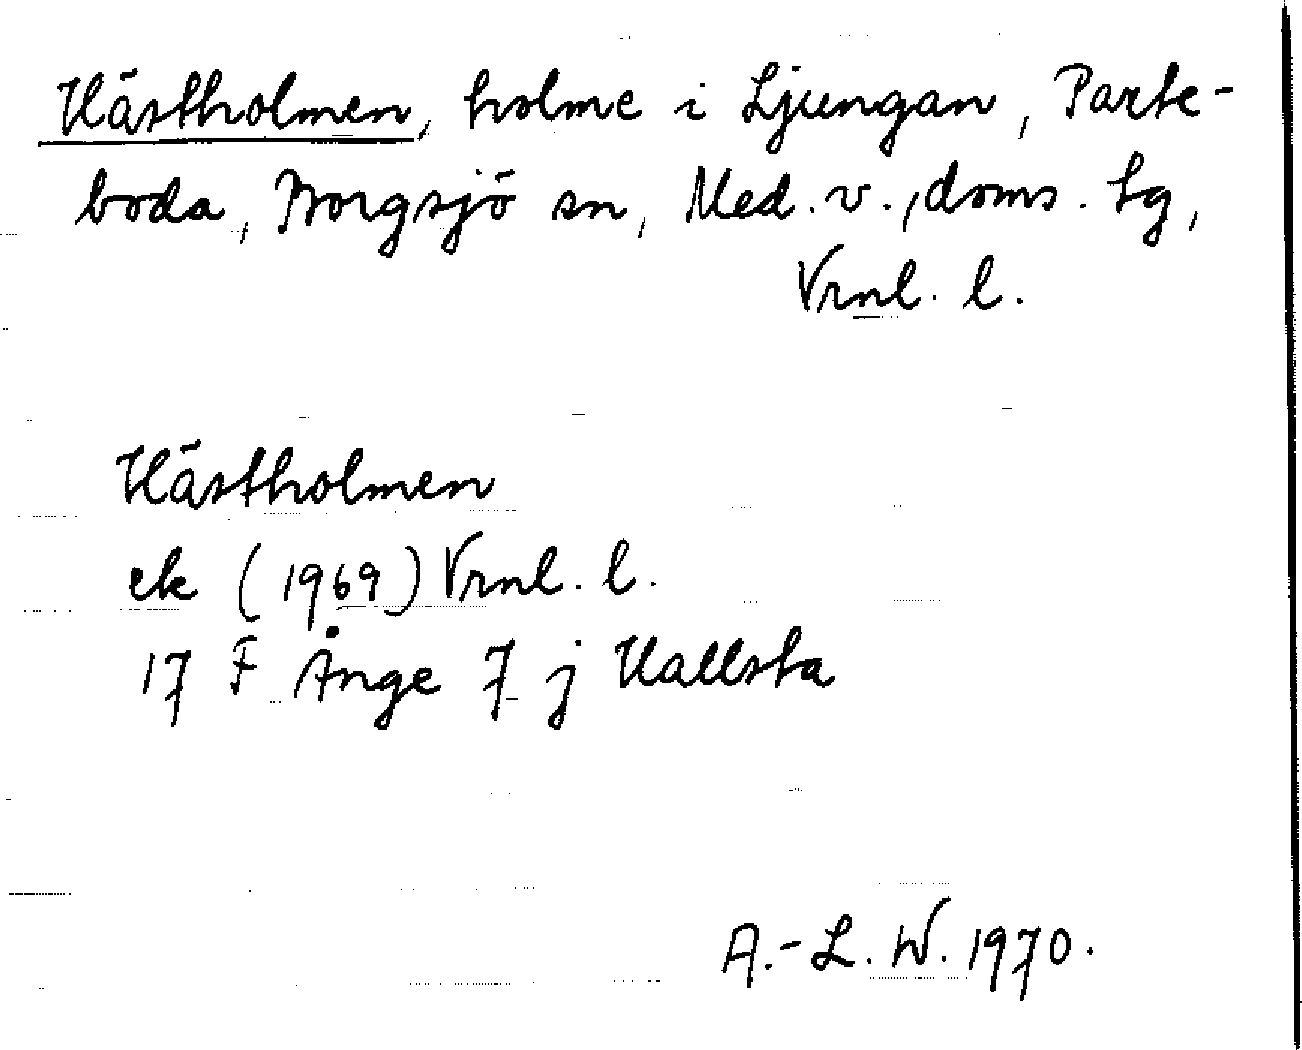 Hästholmen, holme i Ljungan, Parte-
boda, Borgsjö sn, Med. v., doms. tg,
Vrnl. l.
Hästholmen
ek (1969) Vrnl. l.
17 F Ånge 7 j Hallsta
A.-L. W. 1970.